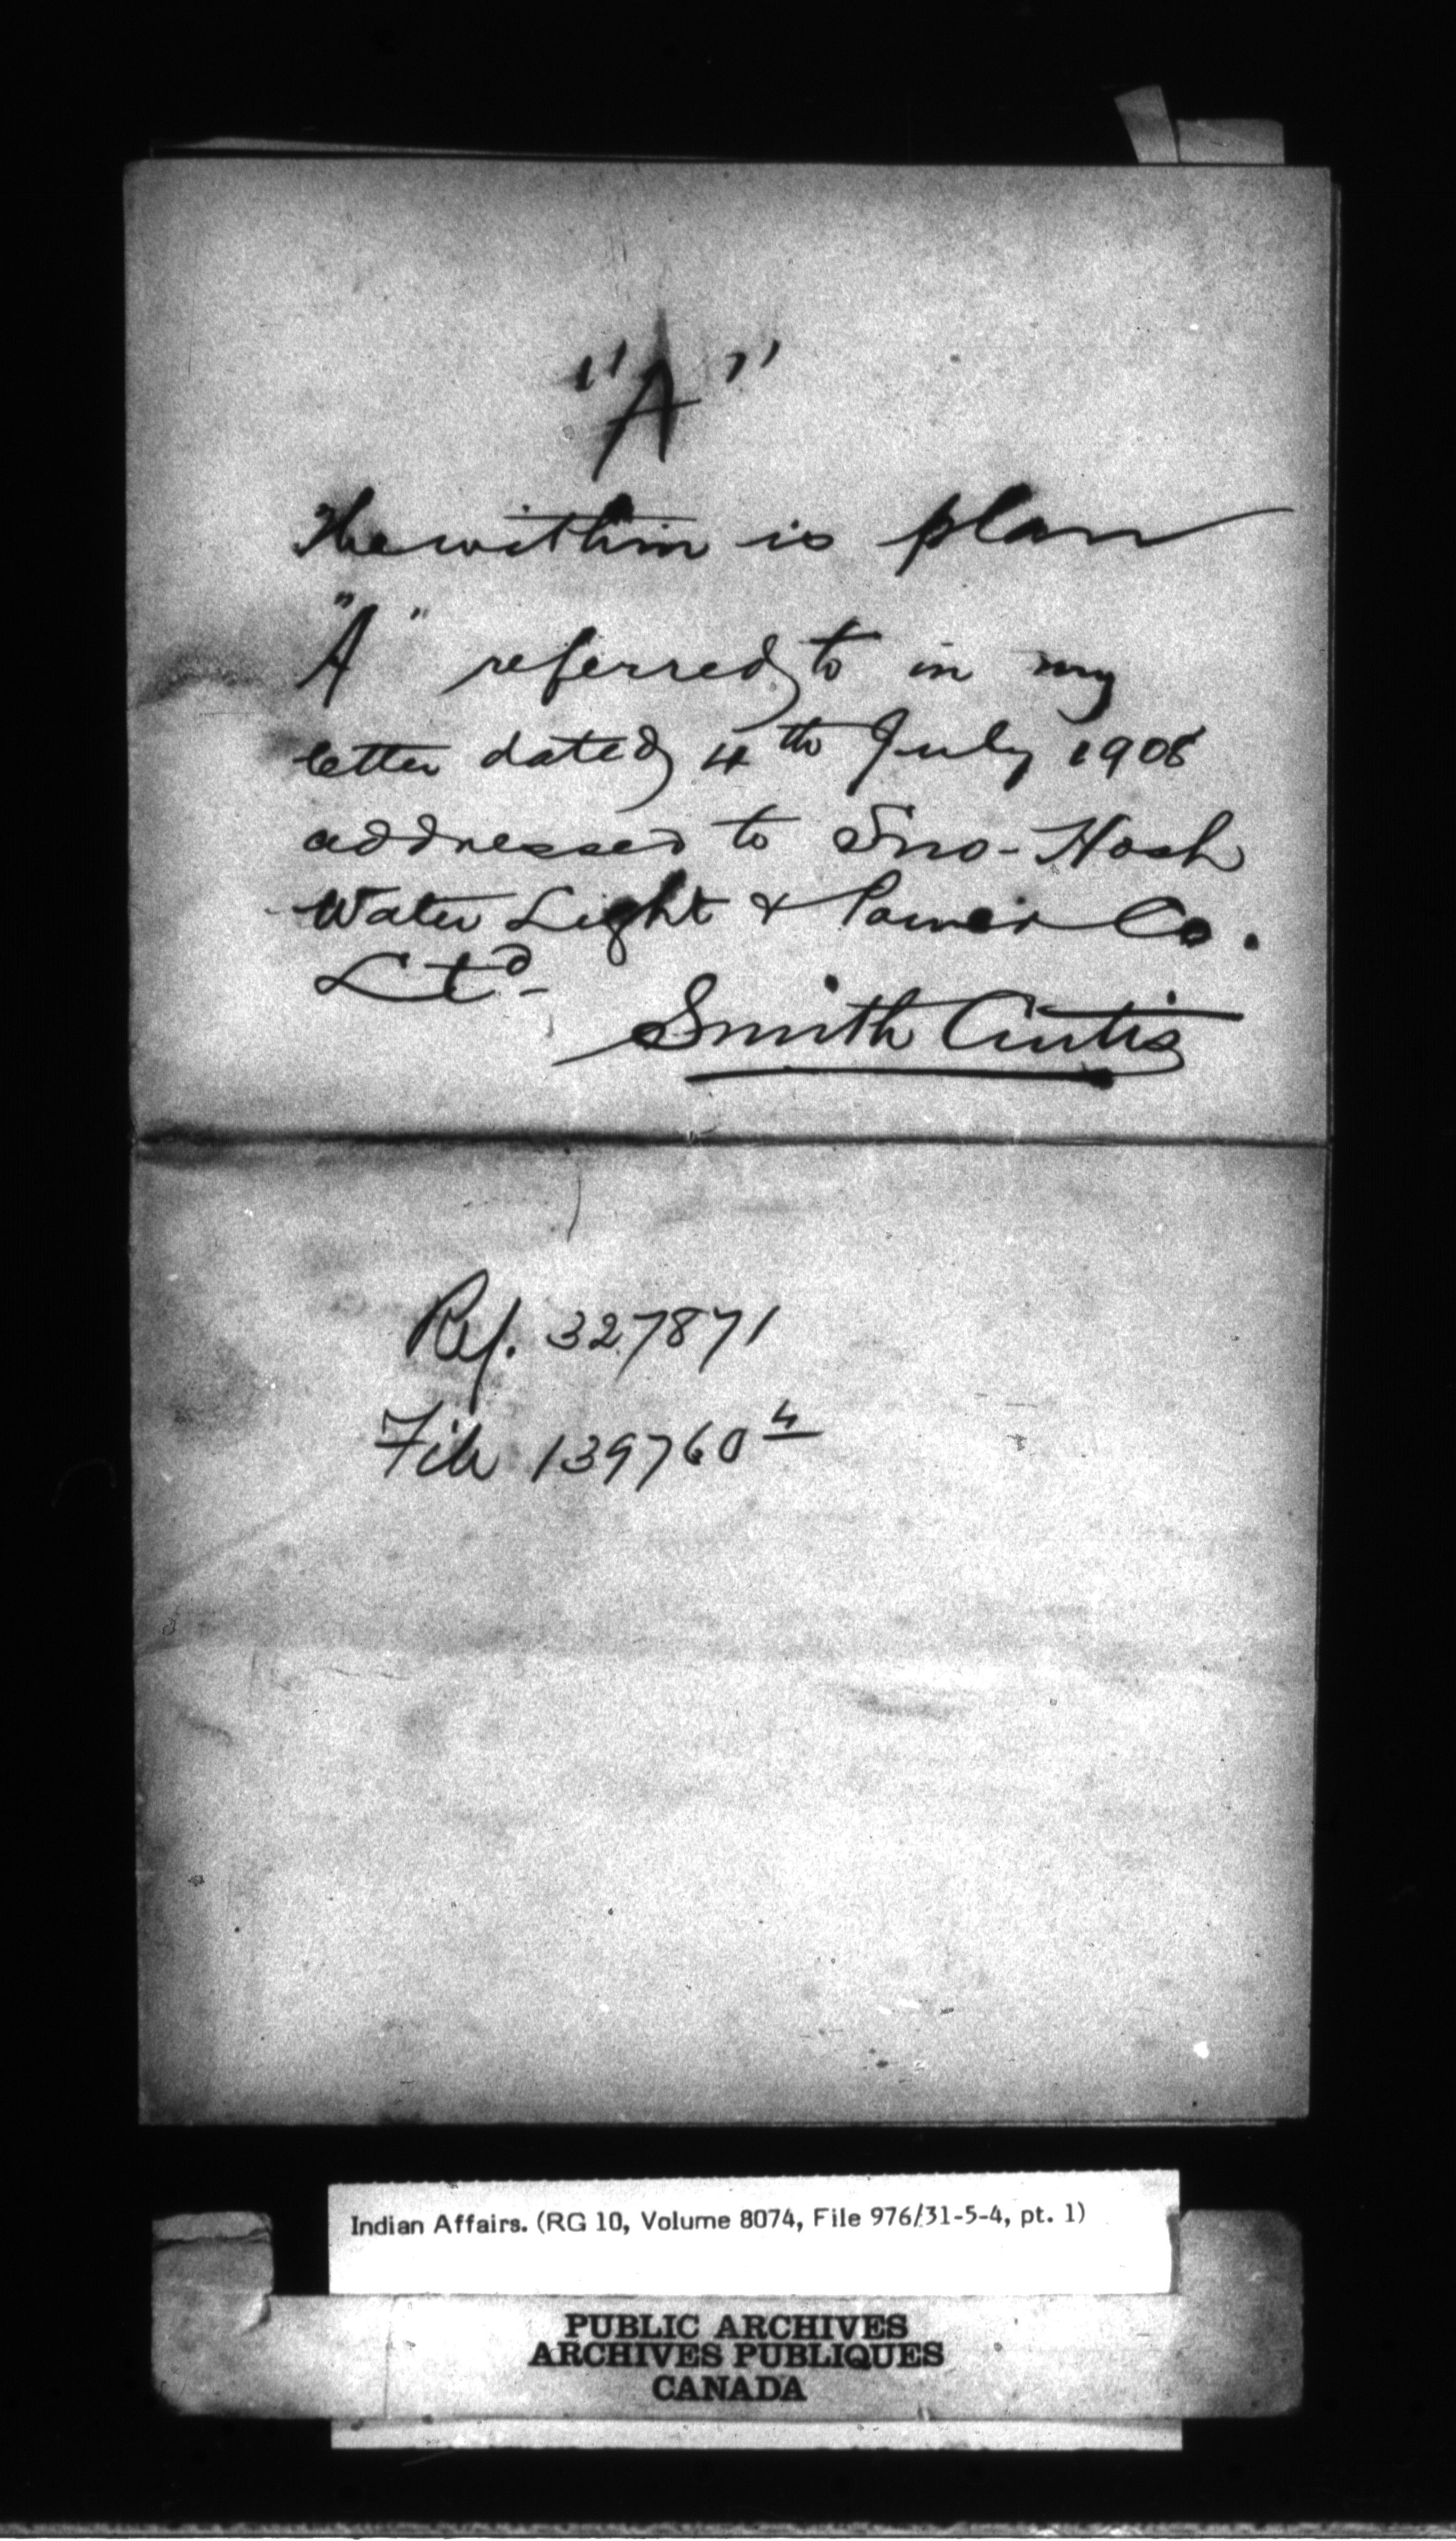 "A"
The within is plan
"A" referred to in my
letter dated 4th July 1908
addressed to Sno-Hosh
Water Light & Power Co.
Ltd-
Smith Curtis
Ref. 327871
File 139760 4
Indian Affairs. (RG 10, Volume 8074, File 976/31-5-4, pt. 1)
PUBLIC ARCHIVES
ARCHIVES PUBLIQUES
CANADA